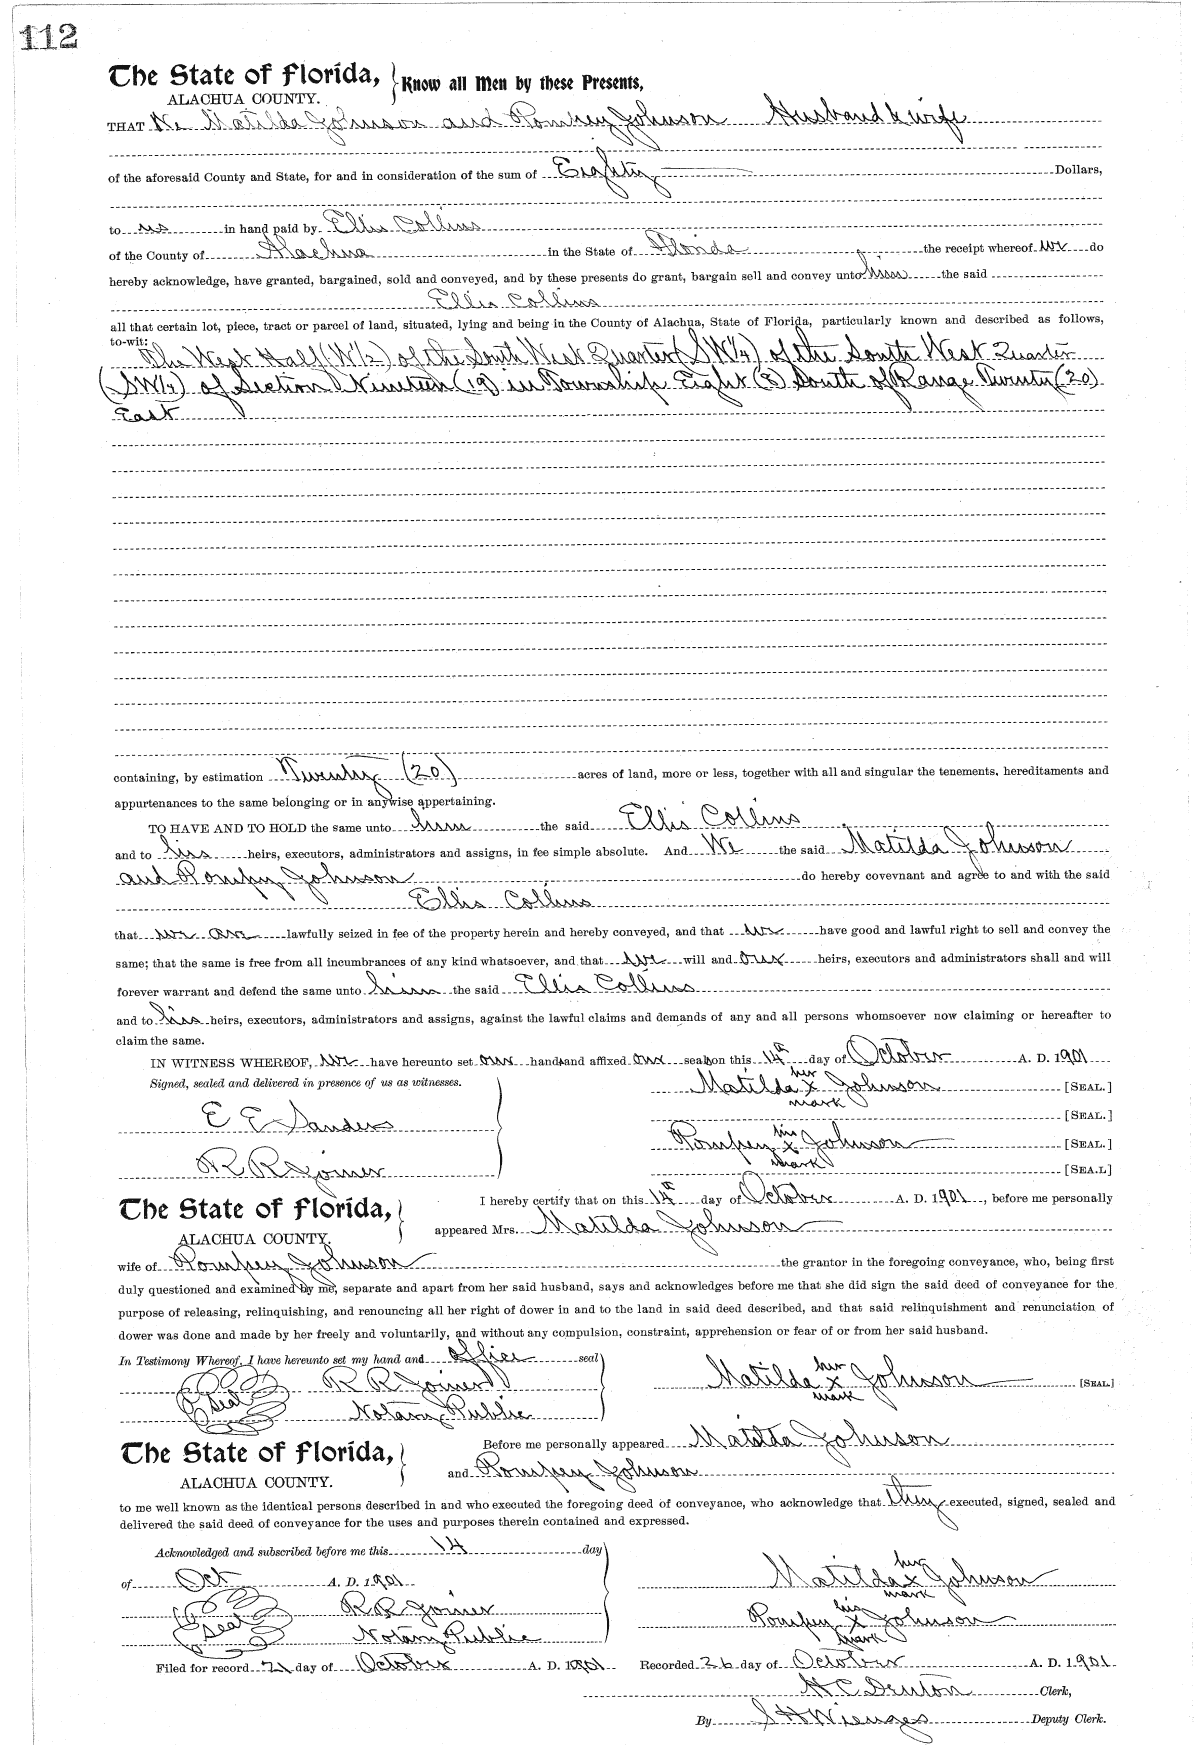 112
The State of Florida, Know all Men by these Presents,
ALACHUA COUNTY.
THAT We Matilda Johnson and Pompey Johnson Husband & wife
of the aforesaid County and State, for and in consideration of the sum of Eighty Dollars,
to us in hand paid by Ellis Collins
of the County of Alachua in the State of Florida the receipt whereof we do
hereby acknowledge, have granted, bargained, sold and conveyed, and by these presents do grant, bargain sell and convey unto him the said
Ellis Collins
all that certain lot, piece, tract or parcel of land, situated, lying and being in the County of Alachua, State of Florida, particularly known and described as follows,
to-wit:
The West Half (W½) of the South West Quarter (SW¼) of the South West Quarter
(SW¼) of Section Nineteen (19) in Township Eight (8) South of Range Twenty (20)
East
containing, by estimation Twenty (20) acres of land, more or less, together with all and singular the tenements, hereditaments and
appurtenances to the same belonging or in anywise appertaining.
TO HAVE AND TO HOLD the same unto him the said Ellis Collins
and to his heirs, executors, administrators and assigns, in fee simple absolute. And We the said Matilda Johnson
and Pompey Johnson do hereby covevnant and agree to and with the said
Ellis Collins
that we are lawfully seized in fee of the property herein and hereby conveyed, and that we have good and lawful right to sell and convey the
same; that the same is free from all incumbrances of any kind whatsoever, and that we will and our heirs, executors and administrators shall and will
forever warrant and defend the same unto him the said Ellis Collins
and to his heirs, executors, administrators and assigns, against the lawful claims and demands of any and all persons whomsoever now claiming or hereafter to
claim the same.
IN WITNESS WHEREOF, we have hereunto set our hands and affixed our seals on this 14th day of October A. D. 1901
Signed, sealed and delivered in presence of us as witnesses.
Matilda her x mark Johnson [SEAL.]
[SEAL.]
E E Sanders
Pompey his x mark Johnson [SEAL.]
R R Joiner
[SEA.L]
The State of Florida,
ALACHUA COUNTY.
I hereby certify that on this 14th day of October A. D. 1901, before me personally
appeared Mrs. Matilda Johnson
wife of Pompey Johnson the grantor in the foregoing conveyance, who, being first
duly questioned and examined by me, separate and apart from her said husband, says and acknowledges before me that she did sign the said deed of conveyance for the
purpose of releasing, relinquishing, and renouncing all her right of dower in and to the land in said deed described, and that said relinquishment and renunciation of
dower was done and made by her freely and voluntarily, and without any compulsion, constraint, apprehension or fear of or from her said husband.
In Testimony Whereof, I have hereunto set my hand and office seal
Seal R R Joiner
Notary Public
Matilda her x mark Johnson [SEAL]
The State of Florida,
ALACHUA COUNTY.
Before me personally appeared Matilda Johnson
and Pompey Johnson
to me well known as the identical persons described in and who executed the foregoing deed of conveyance, who acknowledge that they executed, signed, sealed and
delivered the said deed of conveyance for the uses and purposes therein contained and expressed.
Acknowledged and subscribed before me this 14 day
of Oct A. D. 1901
Seal R R Joiner
Notary Public
Matilda her x mark Johnson
Pompey his x mark Johnson
Filed for record 21 day of October A. D. 1901 Recorded 26 day of October A. D. 1901
H C Denton Clerk,
By S H Wienges Deputy Clerk.